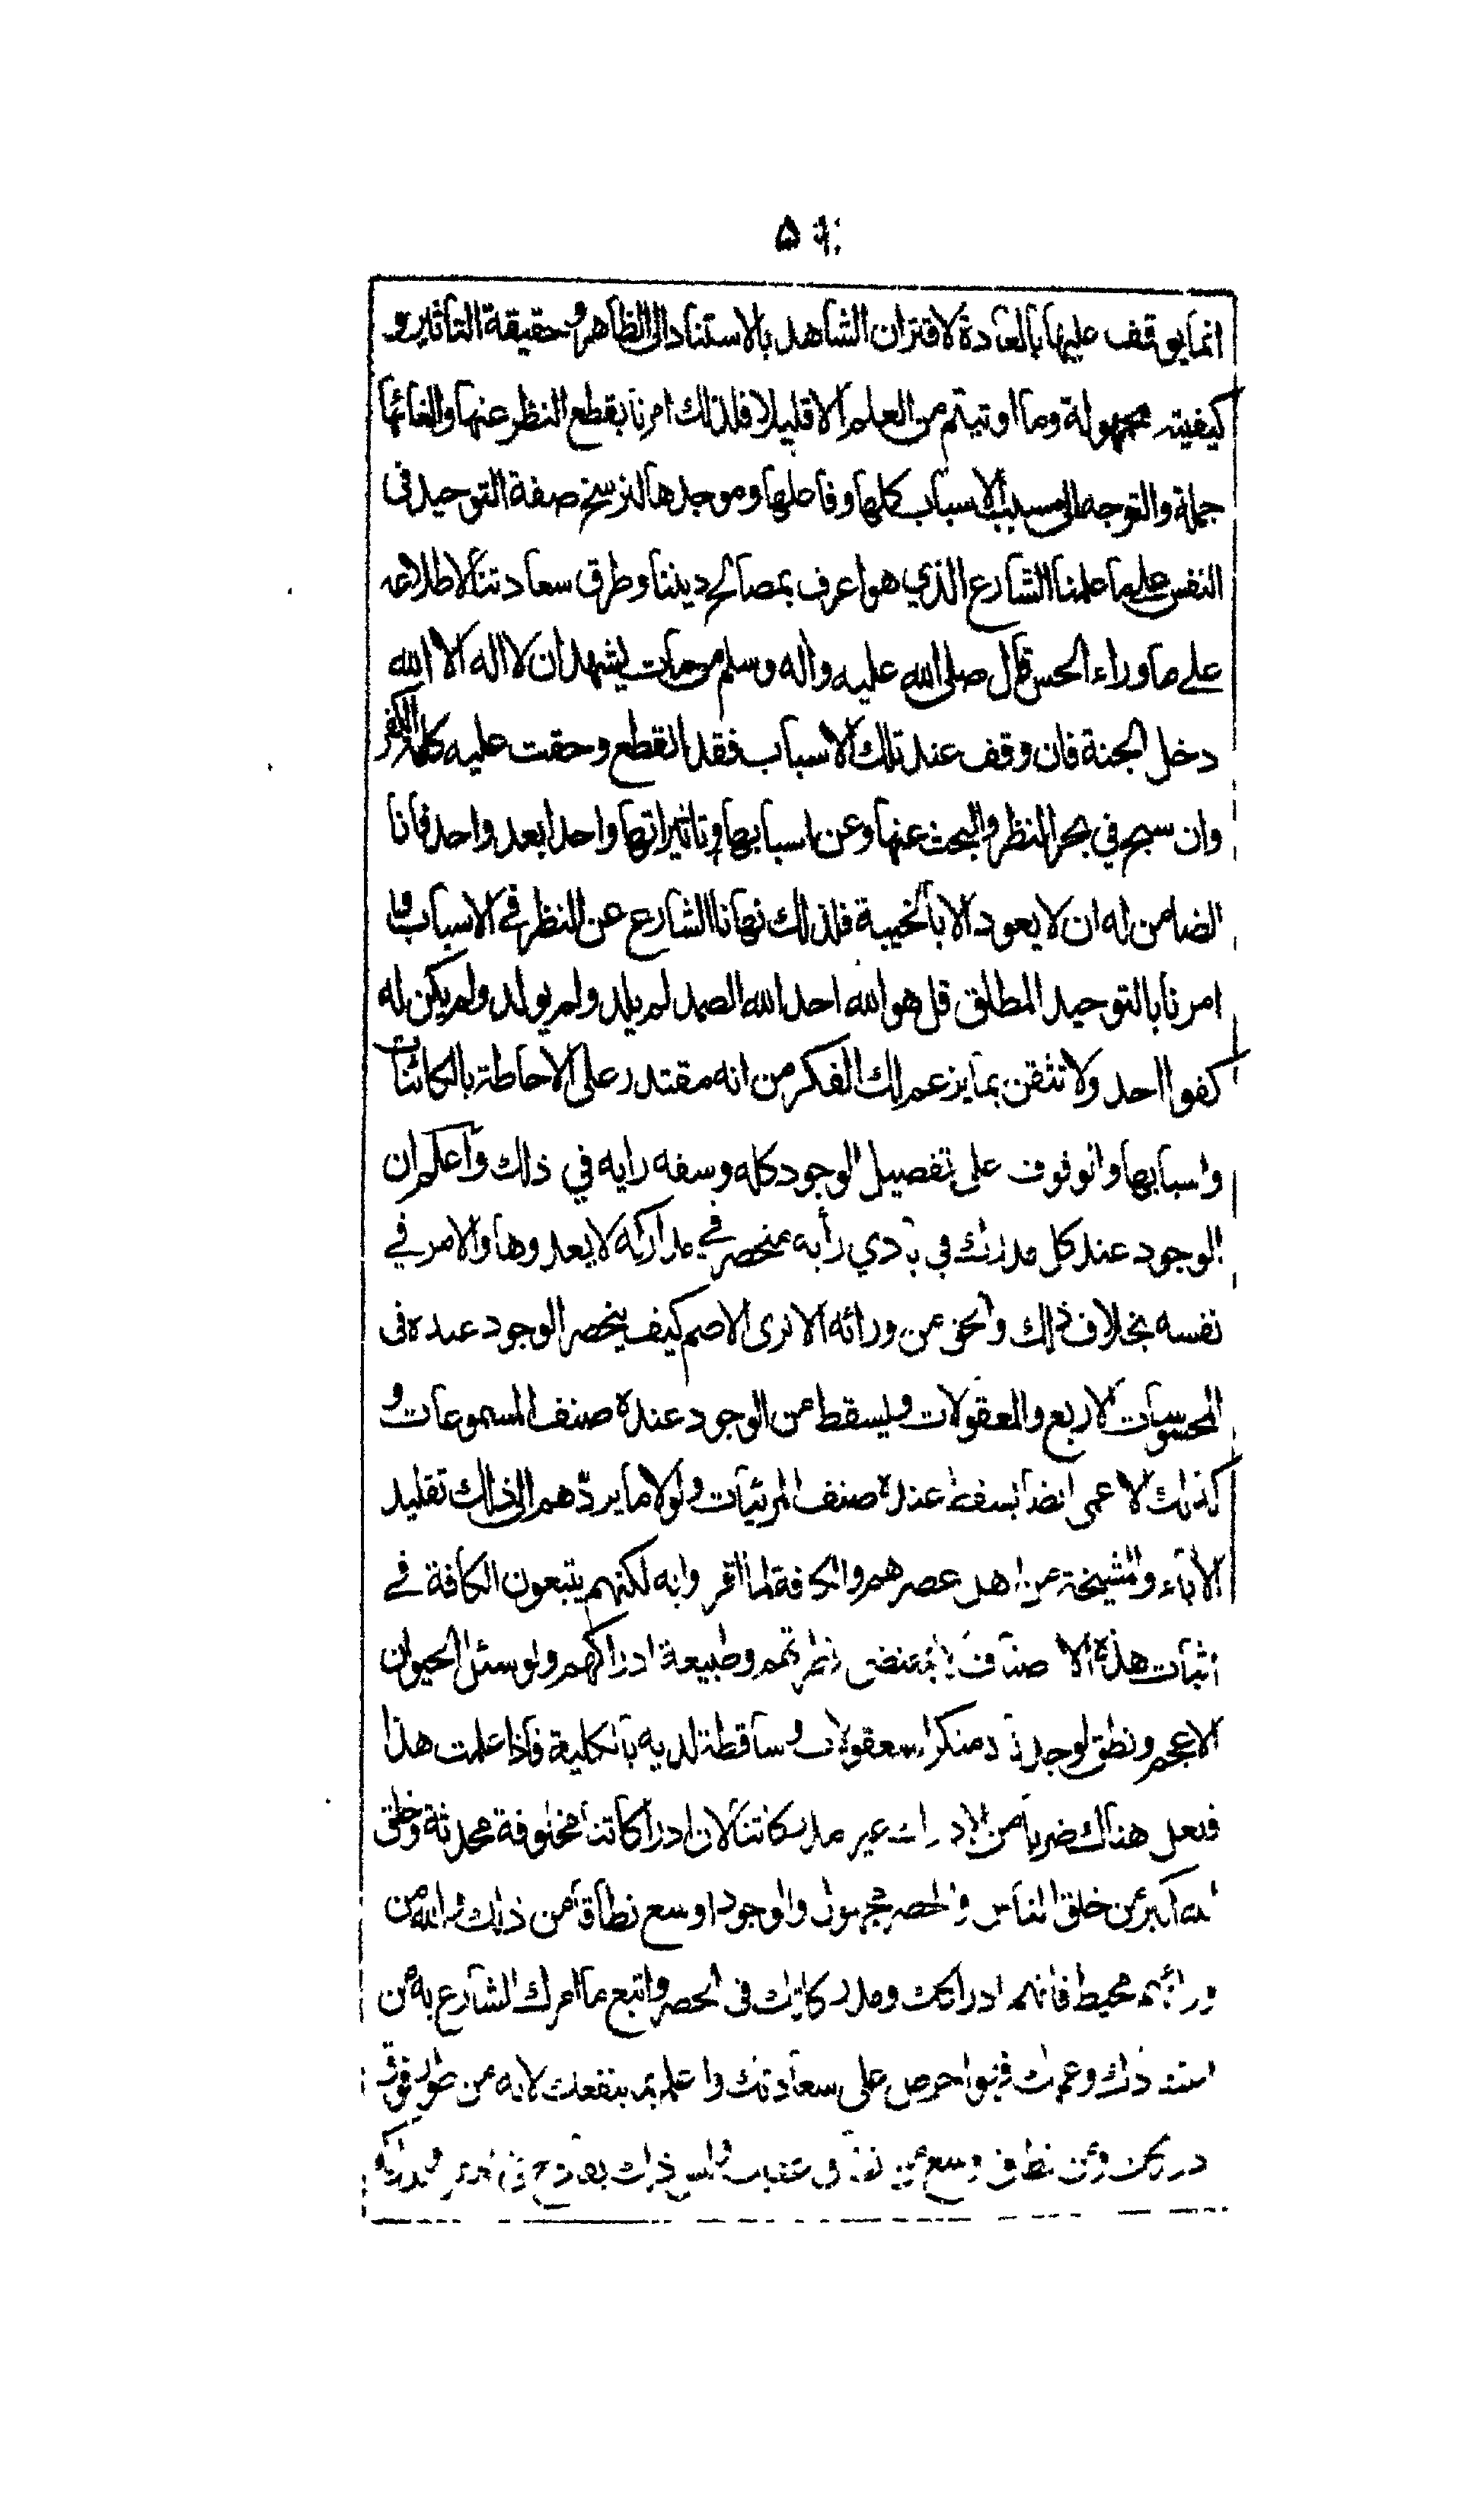 انما يوقف عليها بالعادة لاقتران الشاهد بالاستناد الى الظاهر وحقيقة التاثير و
كيفيته مجهولة وما اوتيتم من العلم الا قليلا فلذلك امرنا بقطع النظر عنها والغائها
جملة والتوجه الى مسبب الاسباب كلها وفاعلها وموجدها لترسخ صفة التوحيد فى
النفس على ما علمنا الشارع الذي هو اعرف بمصالح ديننا وطرق سعادتنا لاطلاعه
على ما وراء الحس قال صلى الله عليه واله وسلم من مات يشهد ان لا اله الا الله
دخل الجنة فان وقف عند تلك الاسباب فقد انقطع وحقت عليه كلمة الكفر
وان سبح في بحر النظر والبحث عنها وعن اسبابها وتاثيراتها واحدا بعد واحد فانا
الضامن له ان لا يعود الا بالخيبة فلذلك نهانا الشارع عن النظر في الاسباب و
امرنا بالتوحيد المطلق قل هو الله احد الله الصمد لم يلد ولم يولد ولم يكن له
كفوا احد ولا تثقن بما يزعم لك الفكر من انه مقتدر على الاحاطة بالكائنات
واسبابها والوقوف على تفصيل الوجود كله وسفه رايه في ذلك واعلم ان
الوجود عند كل مدرك في بادي رأيه منحصر في مداركه لا يعدوها والامر في
نفسه بخلاف ذلك والحق من ورائه الا ترى الاصم كيف ينحصر الوجود عنده فى
المحسوسات الاربع والمعقولات ويسقط من الوجود عنده صنف المسموعات و
كذلك الاعمى ايضا يسقط عنده صنف المرئيات ولولا ما يردّهم الى ذلك تقليد
الآباء والمشيخة من اهل عصرهم والكافة لما اقروا به لكنهم يتبعون الكافة في
اثبات هذه الاصناف لا بمقتضى فطرتهم وطبيعة ادراكهم ولو سئل الحيوان
الاعجم ونطق لوجدناه منكرا للمعقولات وساقطة لديه بالكلية فاذا علمت هذا
فلعل هناك ضربا من الادراك غير مدركاتنا لان ادراكاتنا مخلوقة محدثة وخلق
الله اكبر من خلق الناس والحصر مجهول والوجود اوسع نطاقا من ذلك والله من
ورائهم محيط فاتهم ادراكك ومدركاتك فى الحصر واتبع ما امرك الشارع به من
اعتقادك وعملك فهو احرص على سعادتك واعلم بما ينفعك لانه من طور فوق
ادراكك ومن نطاق اوسع من نطاق عقلك وليس ذلك بقادح فى